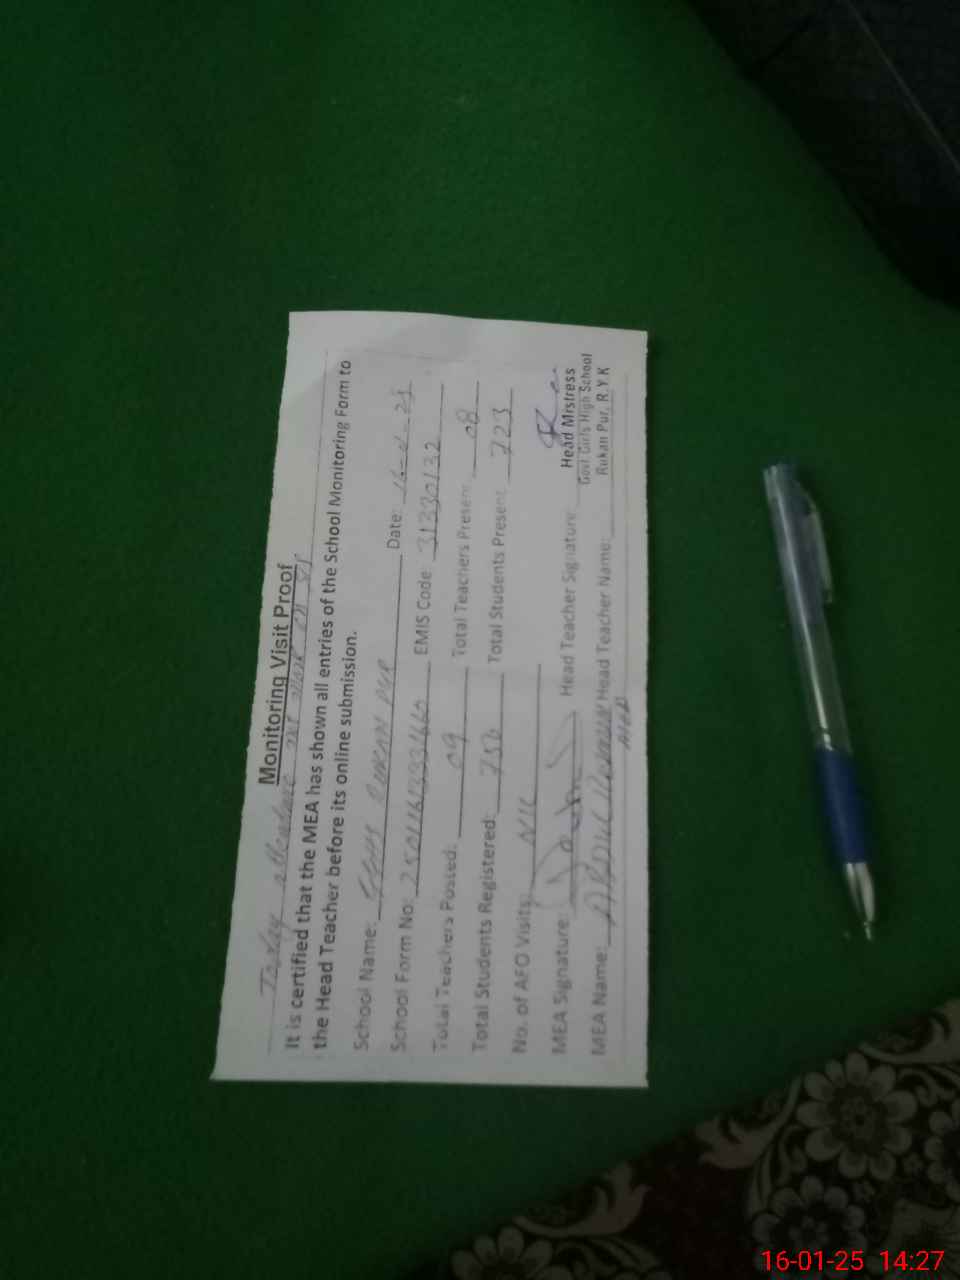 Monitoring Visit Proof
Today
It is certified that the MEA has shown all entries of the School Monitoring Form to
the Head Teacher before its online submission.
School Name: GGHS RUKAN PUR Date: 16-1-25
School Form No: EMIS Code: 31330132
Total Teachers Posted: 09 Total Teachers Present: 08
Total Students Registered: 756 Total Students Present: 723
No. of AEO Visits: NIL
MEA Signature: Head Teacher Signature:
MEA Name: ABDUL Head Teacher Name:
Head Mistress
Govt. Girls High School
Rukan Pur, R.Y.K
16-01-25 14:27